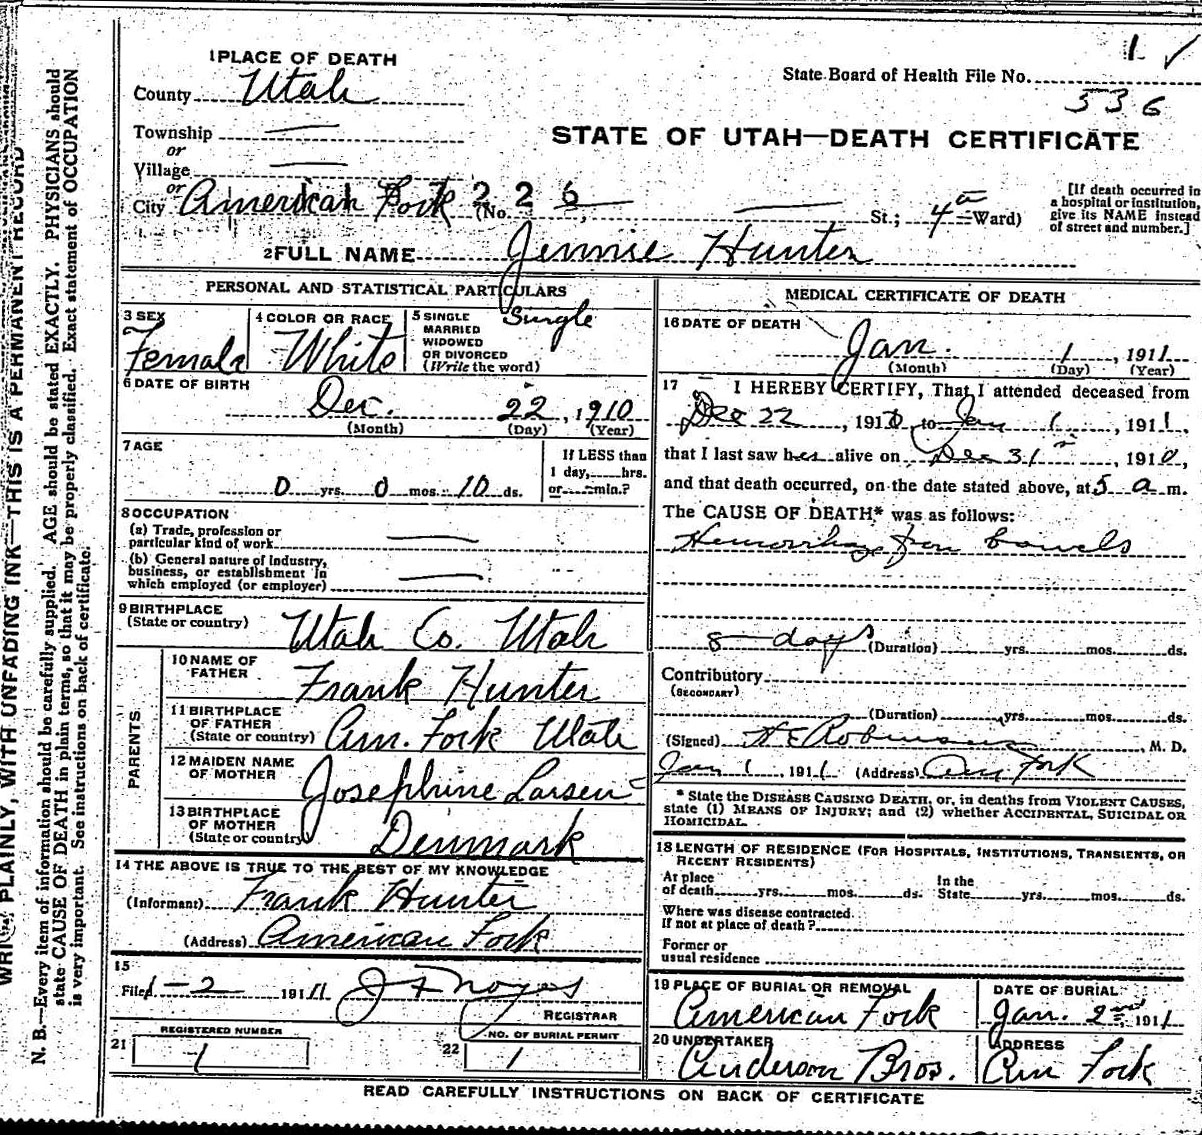 1 ✓
1 PLACE OF DEATH
State Board of Health File No.
County Utah
336
Township —
or
STATE OF UTAH—DEATH CERTIFICATE
Village —
or
City American Fork (No. 226 — — St.; 4th Ward)
[If death occurred in
a hospital or institution,
give its NAME instead
of street and number.]
2 FULL NAME Jennie Hunter
PERSONAL AND STATISTICAL PARTICULARS
3 SEX
Female
4 COLOR OR RACE
White
5 SINGLE
MARRIED
WIDOWED
OR DIVORCED
(Write the word)
Single
6 DATE OF BIRTH
Dec. 22, 1910
(Month) (Day) (Year)
7 AGE
0 yrs. 0 mos. 10 ds.
If LESS than
1 day, hrs.
or min.?
8 OCCUPATION
(a) Trade, profession or
particular kind of work —
(b) General nature of industry,
business, or establishment in
which employed (or employer) —
9 BIRTHPLACE
(State or country)
Utah Co. Utah
PARENTS
10 NAME OF
FATHER
Frank Hunter
11 BIRTHPLACE
OF FATHER
(State or country)
Am. Fork Utah
12 MAIDEN NAME
OF MOTHER
Josephine Larsen
13 BIRTHPLACE
OF MOTHER
(State or country)
Denmark
14 THE ABOVE IS TRUE TO THE BEST OF MY KNOWLEDGE
(Informant) Frank Hunter
(Address) American Fork
15
Filed 1-2 1911 J F Noyes
REGISTRAR
REGISTERED NUMBER
21 1
NO. OF BURIAL PERMIT
22 1
MEDICAL CERTIFICATE OF DEATH
16 DATE OF DEATH
Jan. 1, 1911
(Month) (Day) (Year)
17 I HEREBY CERTIFY, That I attended deceased from
Dec 22, 1910, to Jan 1, 1911,
that I last saw her alive on Dec 31st, 1910,
and that death occurred, on the date stated above, at 5 a m.
The CAUSE OF DEATH* was as follows:
Hemorrhage from bowels
8 days (Duration) yrs. mos. ds.
Contributory
(SECONDARY)
(Duration) yrs. mos. ds.
(Signed) H E Robinson, M. D.
Jan 1, 1911 (Address) Am Fork
* State the DISEASE CAUSING DEATH, or, in deaths from VIOLENT CAUSES,
state (1) MEANS OF INJURY; and (2) whether ACCIDENTAL, SUICIDAL OR
HOMICIDAL.
18 LENGTH OF RESIDENCE (FOR HOSPITALS, INSTITUTIONS, TRANSIENTS, OR
RECENT RESIDENTS)
At place
of death yrs. mos. ds.
In the
State yrs. mos. ds.
Where was disease contracted
If not at place of death?
Former or
usual residence
19 PLACE OF BURIAL OR REMOVAL
American Fork
DATE OF BURIAL
Jan. 2nd 1911
20 UNDERTAKER
Anderson Bros.
ADDRESS
Am Fork
READ CAREFULLY INSTRUCTIONS ON BACK OF CERTIFICATE
WRITE PLAINLY, WITH UNFADING INK—THIS IS A PERMANENT RECORD
N. B.—Every item of information should be carefully supplied. AGE should be stated EXACTLY. PHYSICIANS should
state CAUSE OF DEATH in plain terms, so that it may be properly classified. Exact statement of OCCUPATION
is very important. See instructions on back of certificate.